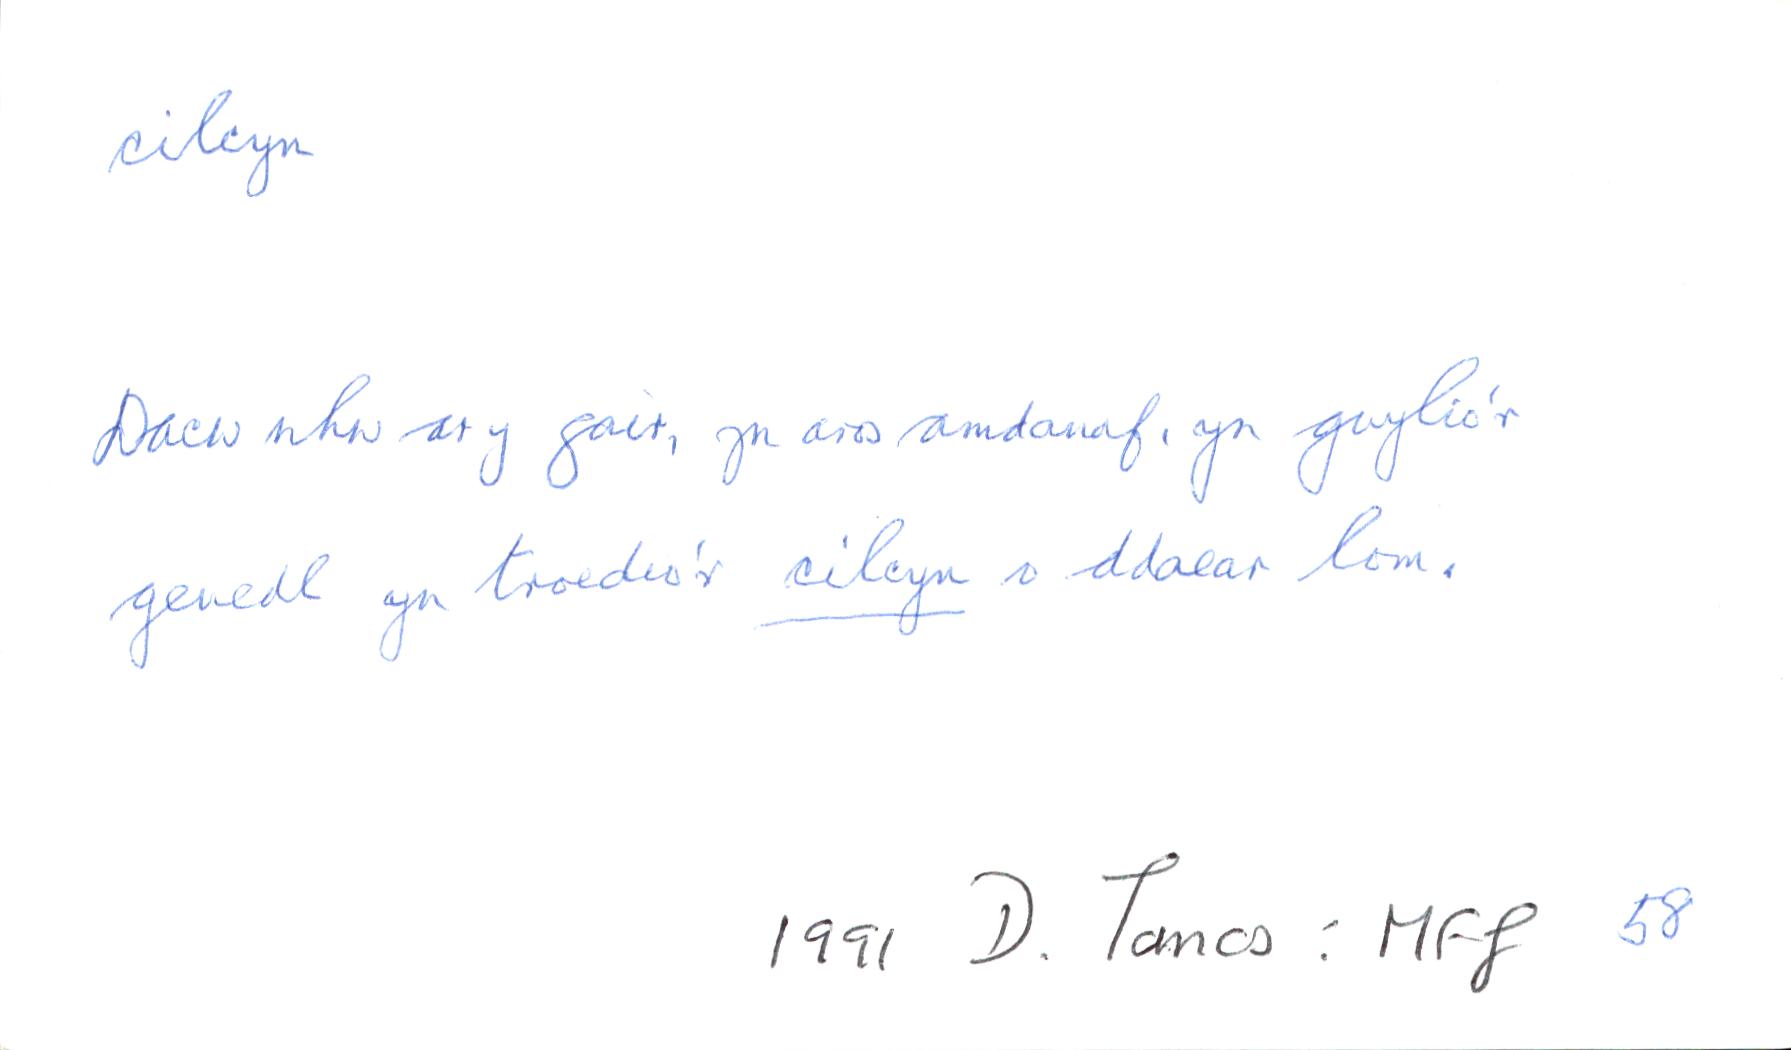 cilcyn
Dacw nhw ar y gair, yn aros amdanaf, yn gwylio'r
genedl yn troedio'r cilcyn o ddaear lom.
1991 D. Tanos : MFf 58